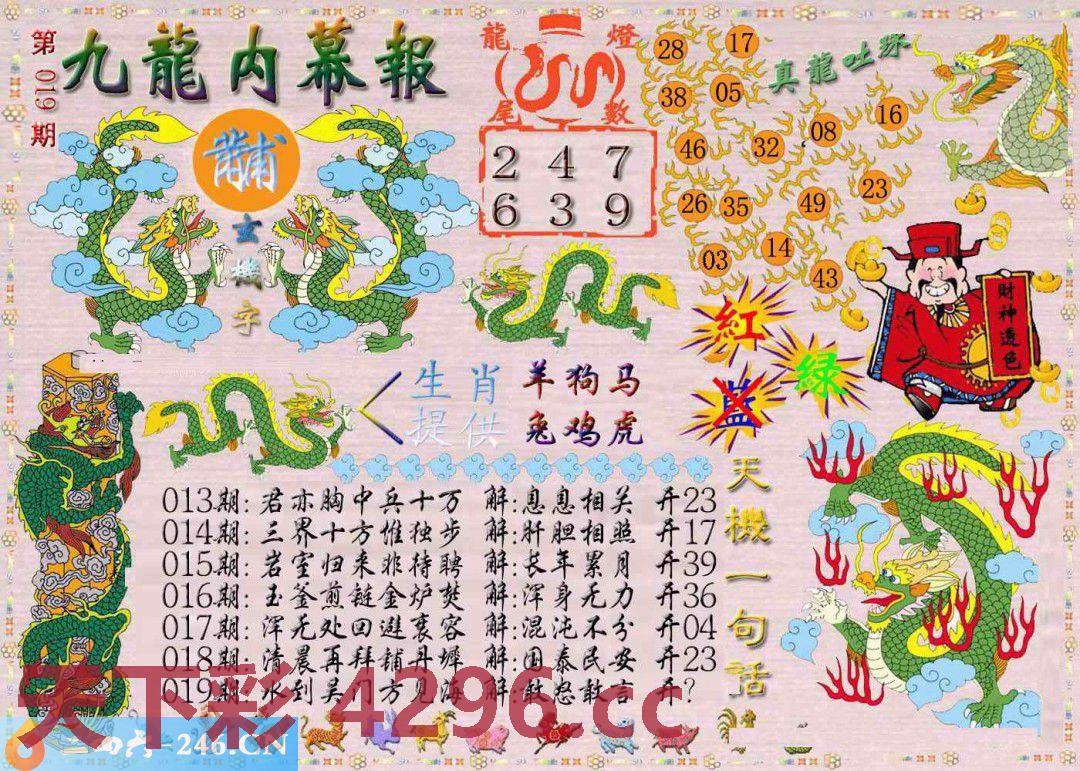 第019期
九龍内幕報
龍燈尾數
2 4 7
6 3 9
真龍吐珠
28 17
38 05
46 32 08 16
26 35 49 23
03 14 43
黼
玄機字
財神透色
紅
绿
蓝
生肖提供
羊狗马
兔鸡虎
天機一句话
013期: 君亦胸中兵十万 解:息息相关 开23
014期: 三界十方惟独步 解:肝胆相照 开17
015期: 岩室归来非待聘 解:长年累月 开39
016期: 玉釜煎鏈金炉焚 解:浑身无力 开36
017期: 浑无处回避衰容 解:混沌不分 开04
018期: 清晨再拜铺丹墀 解:国泰民安 开23
019期: 水到吴门方见海 解:敢怒敢言 开?
天下彩 4296.cc
246.CN